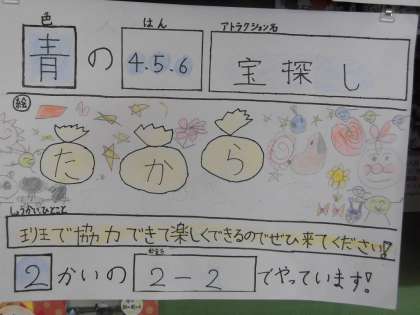 色 はん アトラクション名
青の 4.5.6 宝探し
絵
たから
しょうかいひとこと
班で協力できて楽しくできるのでぜひ来てください!
2かいの 2-2 でやっています!